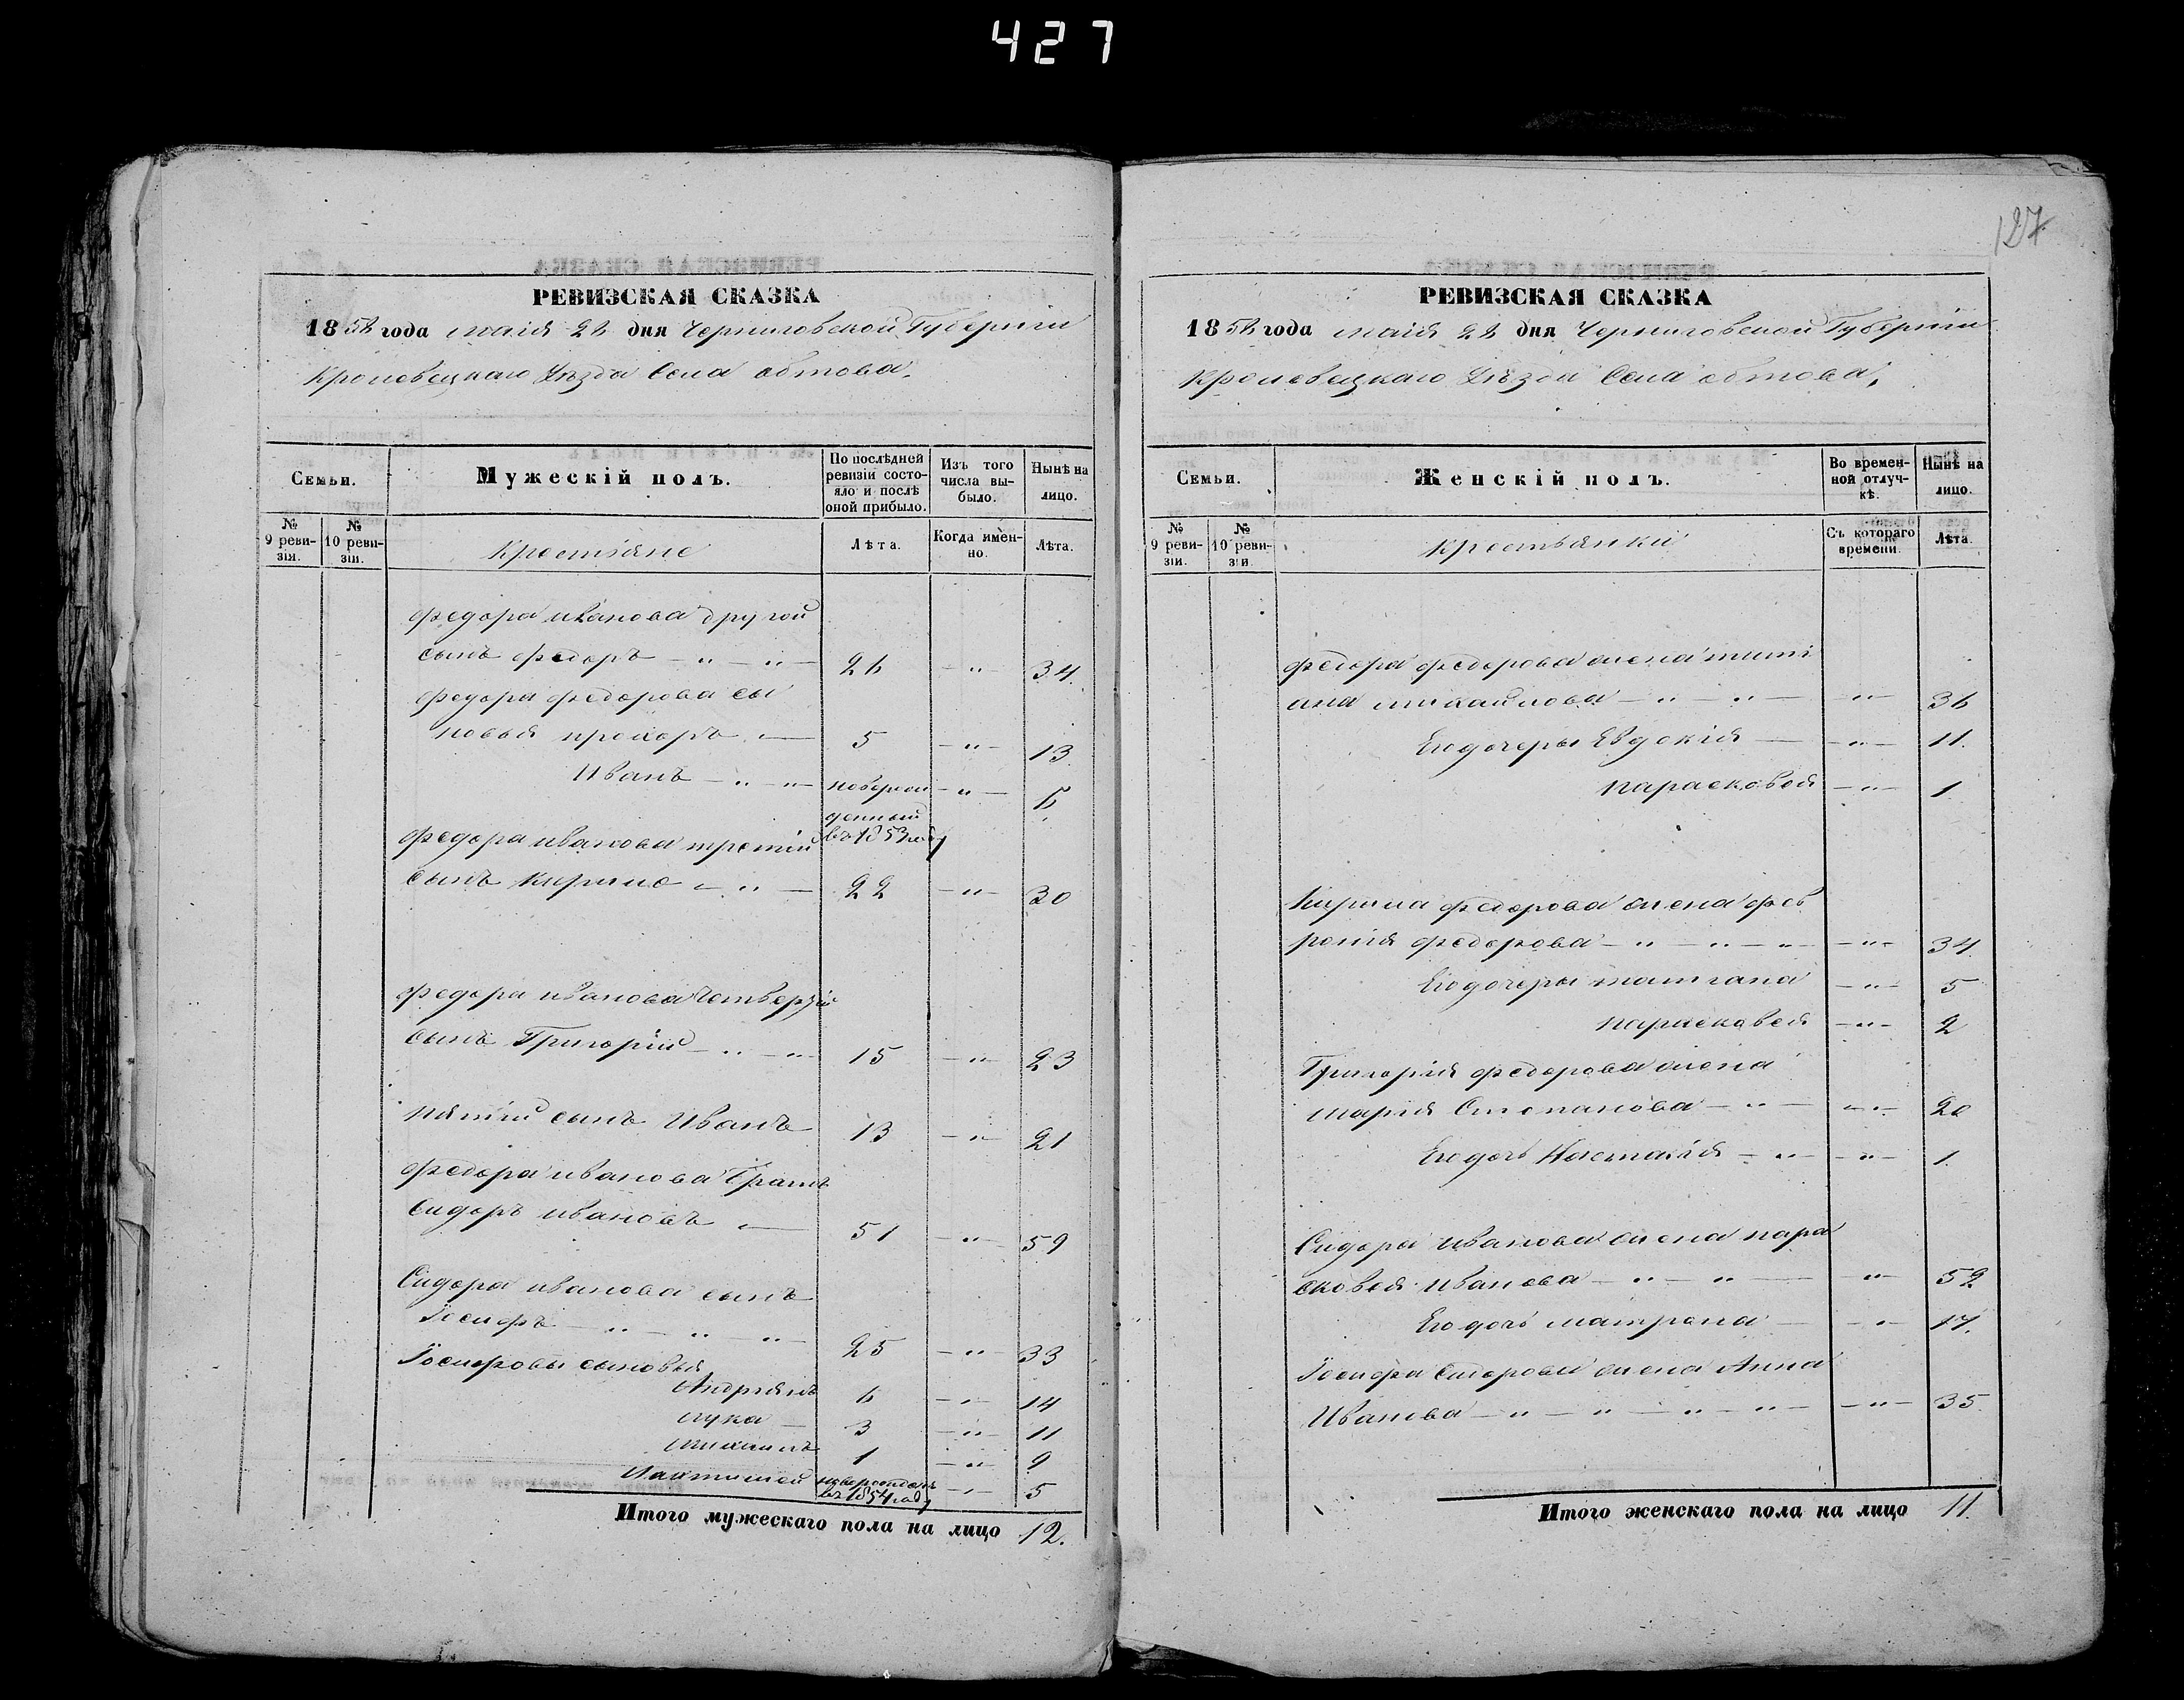 427
127
РЕВИЗСКАЯ СКАЗКА
1858 года маія 28 дня Черниговской Губерніи
Кролевецкаго Уѣзда Села обтова.
Семьи.
Мужескій полъ.
По послѣдней ревизіи состояло и послѣ оной прибыло.
Изъ того числа выбыло.
Нынѣ на лицо.
№ 9 ревизія.
№ 10 ревизіи.
Крестьяне
Лѣта.
Когда имѣнно.
Лѣта.
федора иванова другой
сынъ федоръ — " — " — 26 — " 34.
федора федорова сы
новья прохоръ — 5 — " — 13.
Иванъ — " — " — новорож — " — 6.
денный
въ 1853 году
федора иванова третій
сынъ Кирило — " — 22 — " — 30
федора иванова четвертый
сынъ Григорій — " — " 15 — " — 23
пятый сынъ Иванъ 13 — " — 21
федора иванова братъ
Сидоръ ивановъ — 51 — " — 59
Сидора иванова сынъ
Іосифъ — " — " — " — 25 — " — 33
Іосифовы сыновья
Андріянъ 6 — " — 14
лука — 3 — " — 11
михаилъ 1 — " — 9
новорожденъ — " — 5
въ 1854 году
Итого мужескаго пола на лицо 12.
РЕВИЗСКАЯ СКАЗКА
1858 года маія 28 дня Черниговской Губерніи
Кролевецкаго Уѣзда Села обтова.
Семьи.
Женскій полъ.
Во временной отлучкѣ.
Нынѣ на лицо.
№ 9 ревизіи.
№ 10 ревизіи.
Крестьянки
Съ котораго времени.
Лѣта.
федора федорова жена тати
ана михайлова — " — " — — " — 36
Его дочеры Евдокія — — " — 11.
парасковея — " — 1
Кирила федорова жена фев
ронія федорова — " — " — " — — " — 34.
Его дочеры татіана — " — 5
парасковея — " — 2
Григорія федорова жена
марія Степанова — " — — " — 20
Его дочь Настасія — " — — " — 1.
Сидора иванова жена пара
сковея иванова — " — " — " — 52
Его дочь матрона — — " — 17.
Іосифа Сидорова жена Анна
Иванова — " — " — " — " — — " — 35.
Итого женскаго пола на лицо 11.